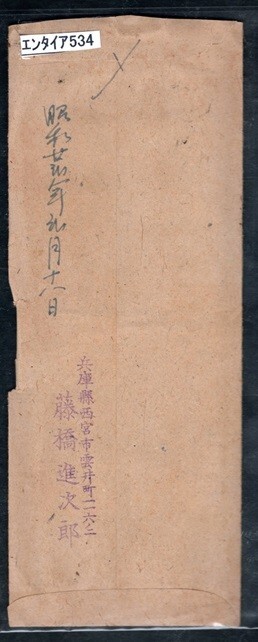 エンタイア534
昭和廿 年 月十八日
兵庫縣西宮市雲井町
藤橋進次郎